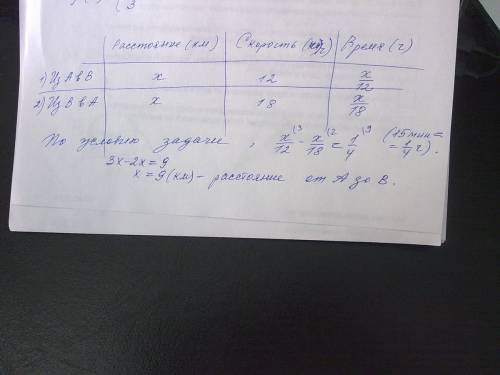 Расстояние (км) Скорость (км/ч) Время (г)
1) Из А в В x 12 x/12
2) Из В в А x 18 x/18
По условию задачи, x/12 (3 - x/18 (2 = 1/4 (9 (15 мин =
3x-2x=9 = 1/4 г).
x = 9 (км) - расстояние от А до В.